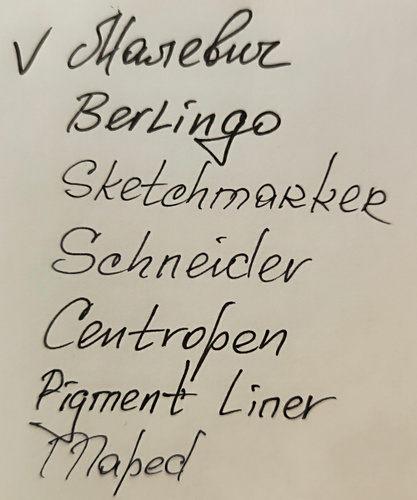 V Малевич
Berlingo
Sketchmarker
Schneider
Centropen
Pigment Liner
Maped